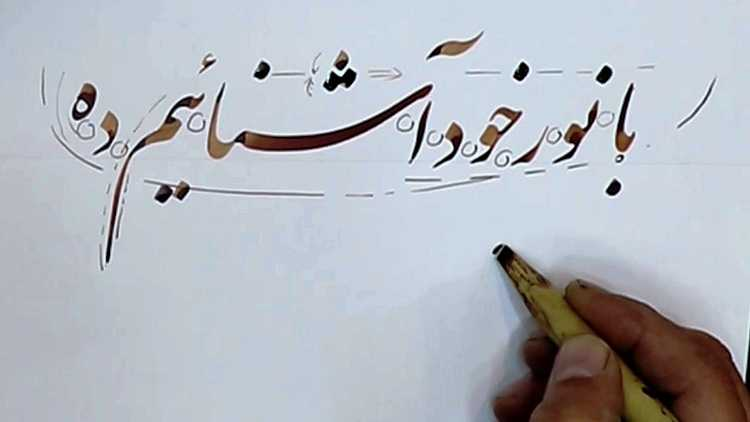 با نور خود آشنائیم ده